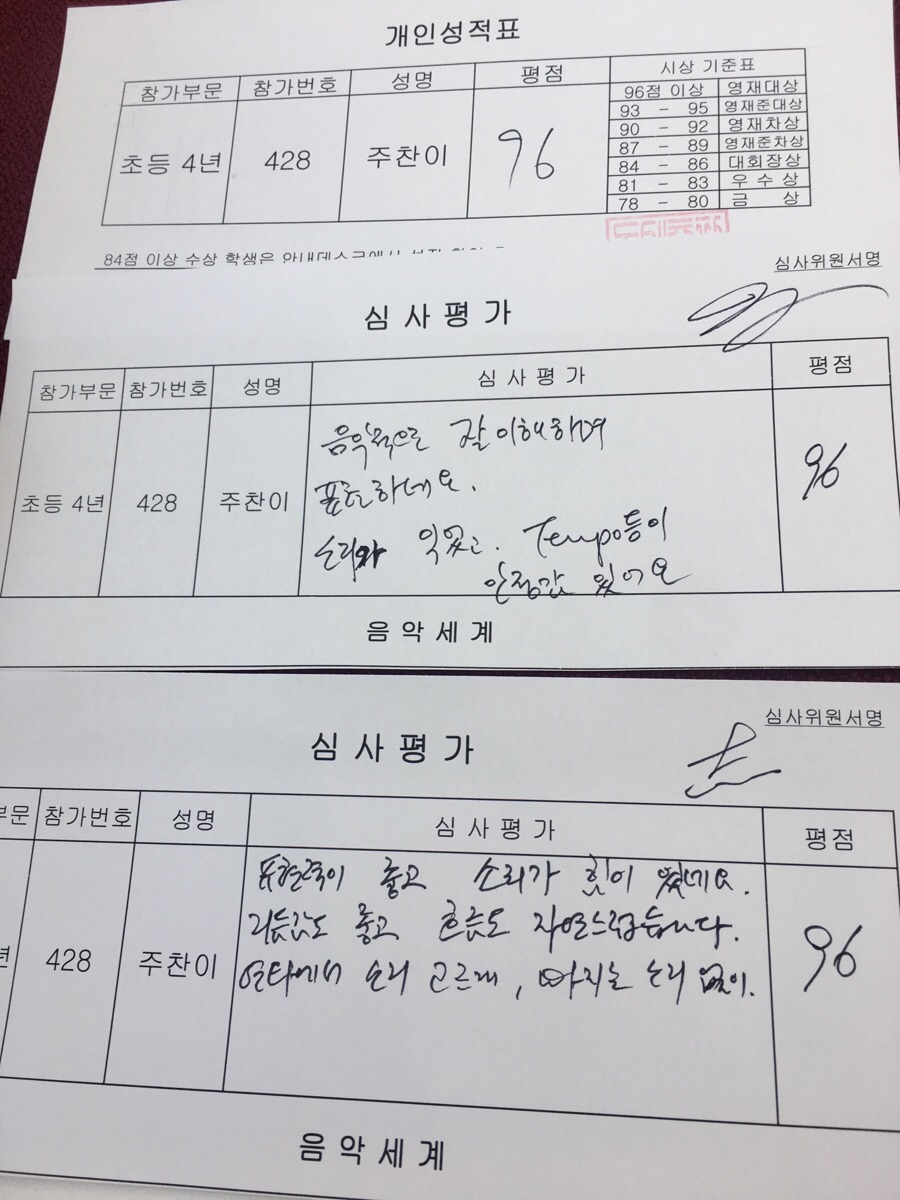 개인성적표
참가부문 참가번호 성명 평점 시상 기준표
초등 4년 428 주찬이 96
96점 이상 영재대상
93 - 95 영재준대상
90 - 92 영재차상
87 - 89 영재준차상
84 - 86 대회장상
81 - 83 우수상
78 - 80 금상
84점 이상 수상 학생은 안내데스크에서
심사위원서명
심사평가
참가부문 참가번호 성명 심사평가 평점
초등 4년 428 주찬이 96
음악적으로 잘 이해하며
표현하네요.
소리와 Tempo등이
안정감 있어요
음악세계
심사위원서명
심사평가
부문 참가번호 성명 심사평가 평점
년 428 주찬이 96
표현력이 좋고 소리가 힘이 있네요.
리듬감도 좋고 흐름도 자연스럽습니다.
연타에서 소리 고르게, 빠지는 소리 없이.
음악세계